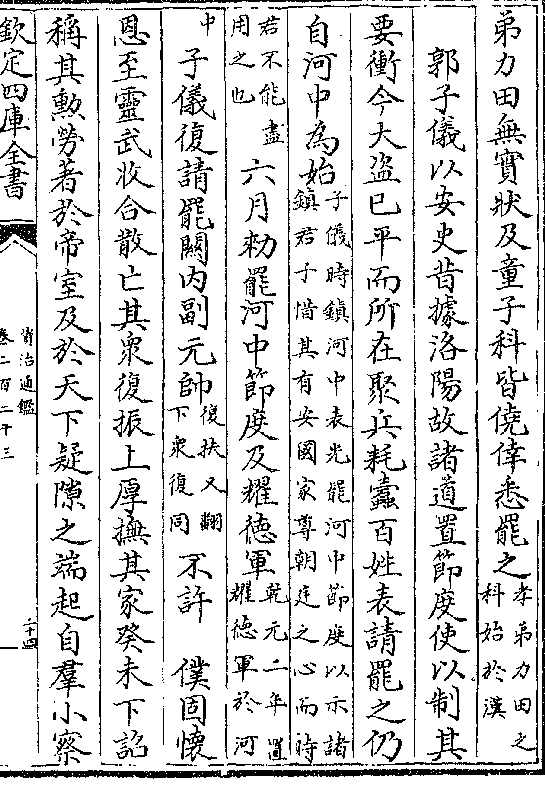 弟力田無實狀及童子科皆僥倖悉罷之孝弟力田之科始於漢
郭子儀以安史昔據洛陽故諸道置節度使以制其
要衝今大盗已平而所在聚兵耗蠧百姓表請罷之仍
自河中為始子儀時鎮河中表先罷河中節度以示諸鎮君子惜其有安國家尊朝廷之心而時
君不能盡用之也六月勅罷河中節度及耀徳軍乾元二年置耀徳軍於河
中子儀復請罷闗内副元帥復扶又翻下衆復同不許 僕固懷
恩至靈武收合散亡其衆復振上厚撫其家癸未下詔
稱其勲勞著於帝室及於天下疑隙之端起自羣小察
欽定四庫全書
資治通鑑
卷二百二十三
二十四